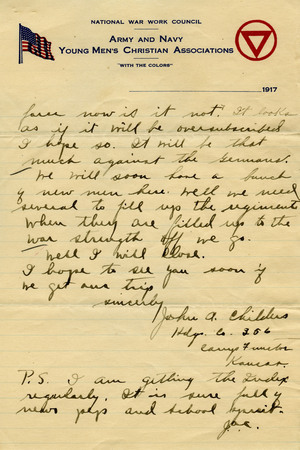 NATIONAL WAR WORK COUNCIL
ARMY AND NAVY
YOUNG MEN'S CHRISTIAN ASSOCIATIONS
"WITH THE COLORS"
1917
now is it not. It looks
as if it will be oversubscribed
I hope so. It will be that
much against the Germans.
We will soon have a bunch
of new men here. Well we need
several to fill up the regiment
When they are filled up to the
War strength off we go.
Well I will close.
I hope to see you soon if
we get our trip
sincerely
John A. Childers
Hdqs. Co. 356
Camp Funston
Kansas.
P.S. I am getting the Index
regularly. It is sure full of
news pep and school spirit.
J.A.C.